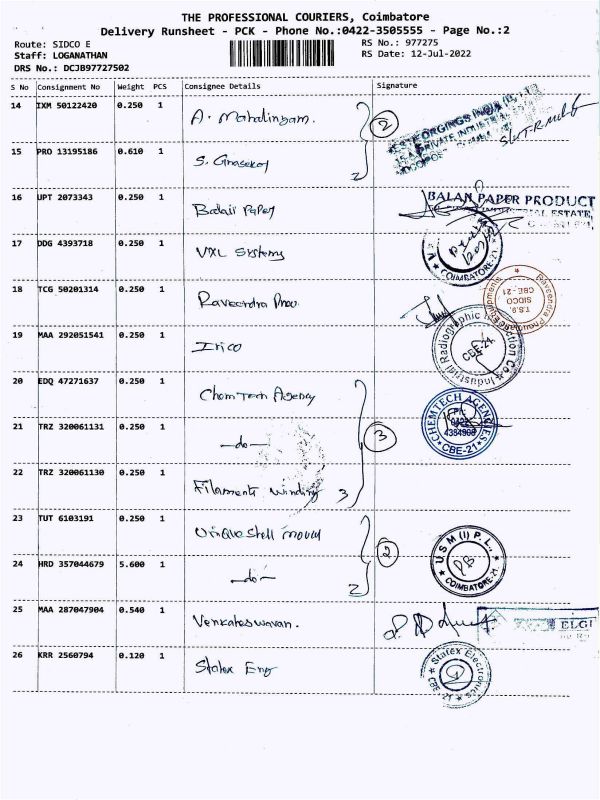 THE PROFESSIONAL COURIERS, Coimbatore
Delivery Runsheet - PCK - Phone No.:0422-3505555 - Page No.:2
Route: SIDCO E
Staff: LOGANATHAN
DRS No.: DCJB97727502
RS No.: 977275
RS Date: 12-Jul-2022
S No Consignment No Weight PCS Consignee Details Signature
14 IXM 50122420 0.250 1 A. Mahalingam. 2
15 PRO 13195186 0.610 1 S. 2
16 UPT 2073343 0.250 1 Balaji Paper BALAN PAPER PRODUCT
17 DDG 4393718 0.250 1 VXL Systems COIMBATORE-21
18 TCG 50201314 0.250 1 Raveendra Pneu. Raveendra Pneumatic Equipments T.S.9, SIDCO CBE-21
19 MAA 292051541 0.250 1 Irico Industrial Radiographic Inspection Co. CBE-21
20 EDQ 47271637 0.250 1 ChemTech Agency CHEMTECH AGENCIES CBE-21
21 TRZ 320061131 0.250 1 —do— 3
22 TRZ 320061130 0.250 1 Filament winding 3
23 TUT 6103191 0.250 1 Unique Shell mould 2
24 HRD 357044679 5.600 1 —do— 2 U S M (I) P. L., COIMBATORE-21
25 MAA 287047904 0.540 1 Venkateswaran. ELGI
26 KRR 2560794 0.120 1 Statex Eng Statex Electronics CBE-21